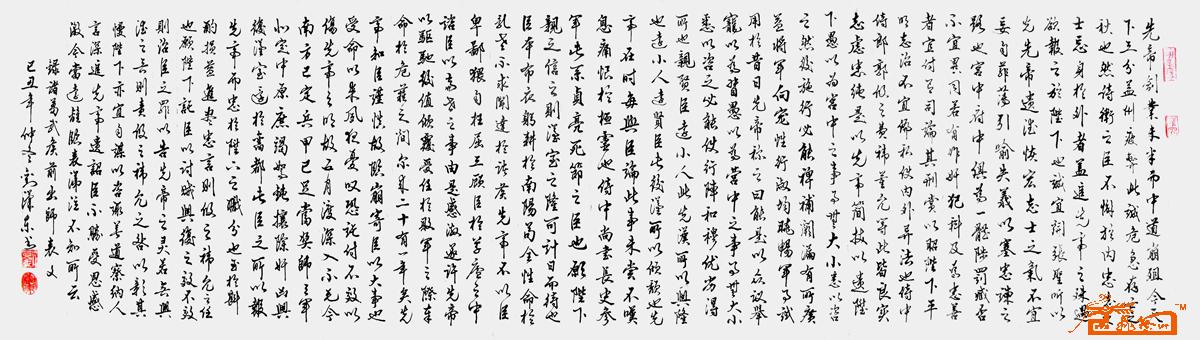 先帝創業未半而中道崩殂今天
下三分益州疲弊此誠危急存亡之
秋也然侍衛之臣不懈於內忠志之
士忘身於外者蓋追先帝之殊遇
欲報之於陛下也誠宜開張聖聽以
光先帝遺德恢宏志士之氣不宜
妄自菲薄引喻失義以塞忠諫之
路也宮中府中俱為一體陟罰臧否
不宜異同若有作奸犯科及為忠善
者宜付有司論其刑賞以昭陛下平
明之治不宜偏私使內外異法也侍中
侍郎郭攸之費禕董允等此皆良實
志慮忠純是以先帝簡拔以遺陛
下愚以為宮中之事事無大小悉以咨
之然後施行必能裨補闕漏有所廣
益將軍向寵性行淑均曉暢軍事試
用於昔日先帝稱之曰能是以眾議舉
寵以為督愚以為營中之事事無大小
悉以咨之必能使行陣和穆優劣得
所也親賢臣遠小人此先漢所以興隆
也遠小人遠賢臣此後漢所以傾頹也先
帝在時每與臣論此事未嘗不嘆
息痛恨於桓靈也侍中尚書長史參
軍此悉貞亮死節之臣也願陛下
親之信之則漢室之隆可計日而待也
臣本布衣躬耕於南陽苟全性命於
亂世不求聞達於諸侯先帝不以臣
卑鄙猥自枉屈三顧臣於草廬之中
諮臣以當世之事由是感激遂許先帝
以驅馳後值傾覆受任於敗軍之際奉
命於危難之間爾來二十有一年矣先
帝知臣謹慎故臨崩寄臣以大事也
受命以來夙夜憂嘆恐託付不效以
傷先帝之明故五月渡瀘深入不毛今
南方已定兵甲已足當獎帥三軍
北定中原庶竭駑鈍攘除奸凶興
復漢室還於舊都此臣之所以報
先帝而忠於陛下之職分也至於斟
酌損益進盡忠言則攸之禕允之任
也願陛下託臣以討賊興復之效不效
則治臣之罪以告先帝之靈若無興
德之言則責攸之禕允之咎以彰其
慢陛下亦宜自謀以咨諏善道察納雅
言深追先帝遺詔臣不勝受恩感
激今當遠離臨表涕泣不知所云
錄諸葛武侯前出師表文
己丑年仲冬劉澤東書